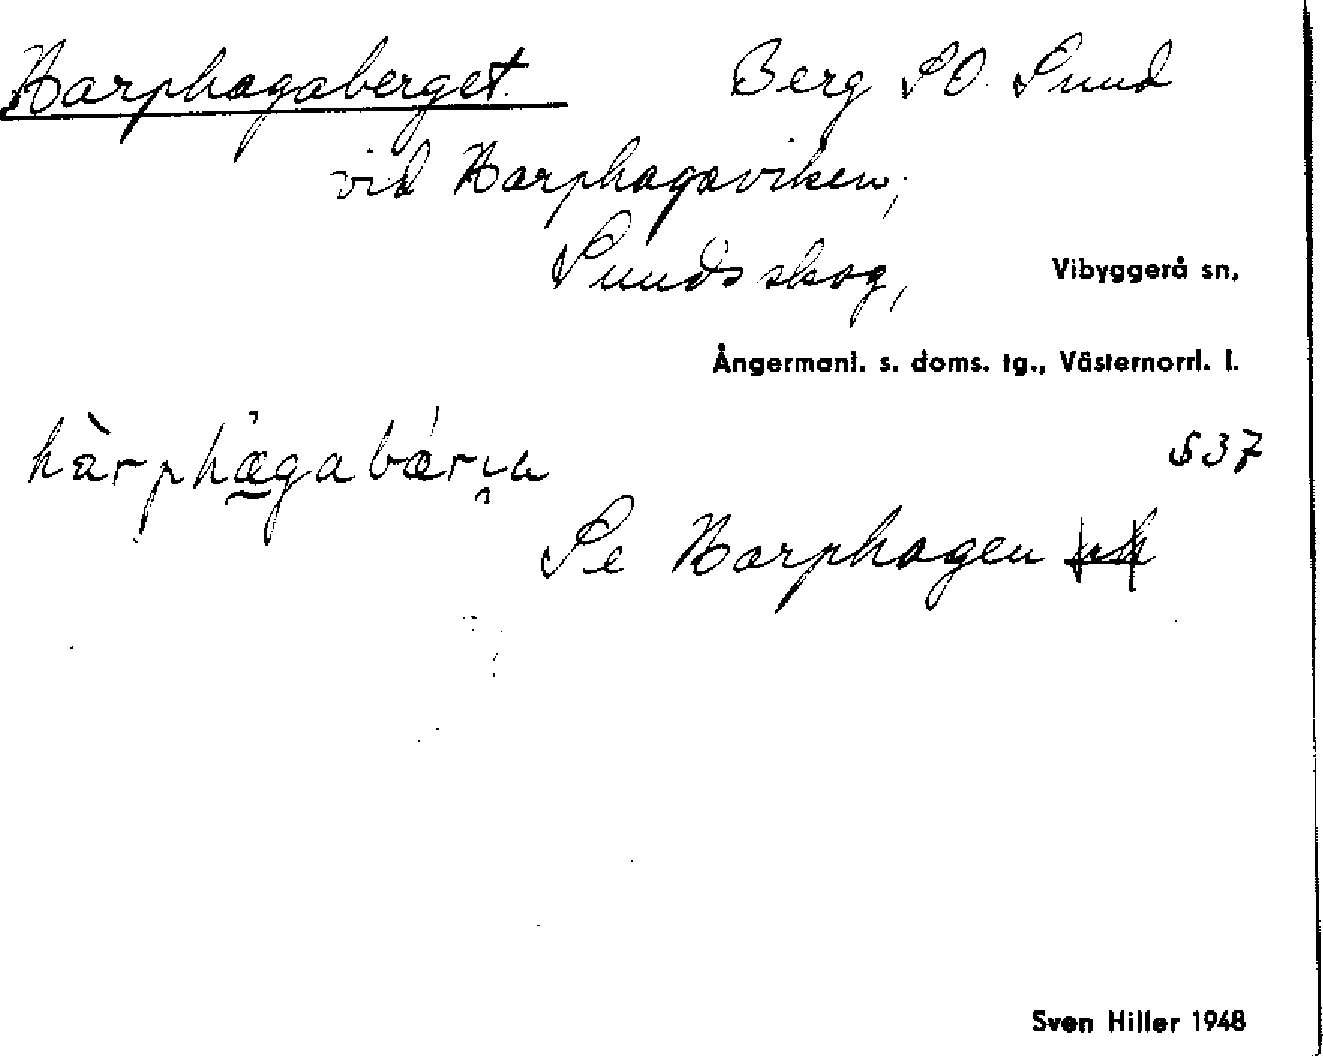 Harphagaberget. Berg SO. Sund
vid Harphagaviken,
Sunds skog, Vibyggerå sn,
Ångermanl. s. doms. tg., Västernorrl. l.
S 37
Se Harphagen
Sven Hiller 1948